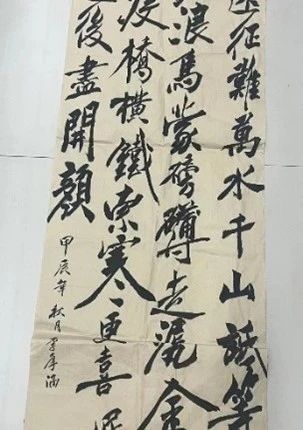 遠征難萬水千山祗等
浪烏蒙磅礴走泥
橋橫鐵索寒更喜
後盡開顏
甲辰年秋月